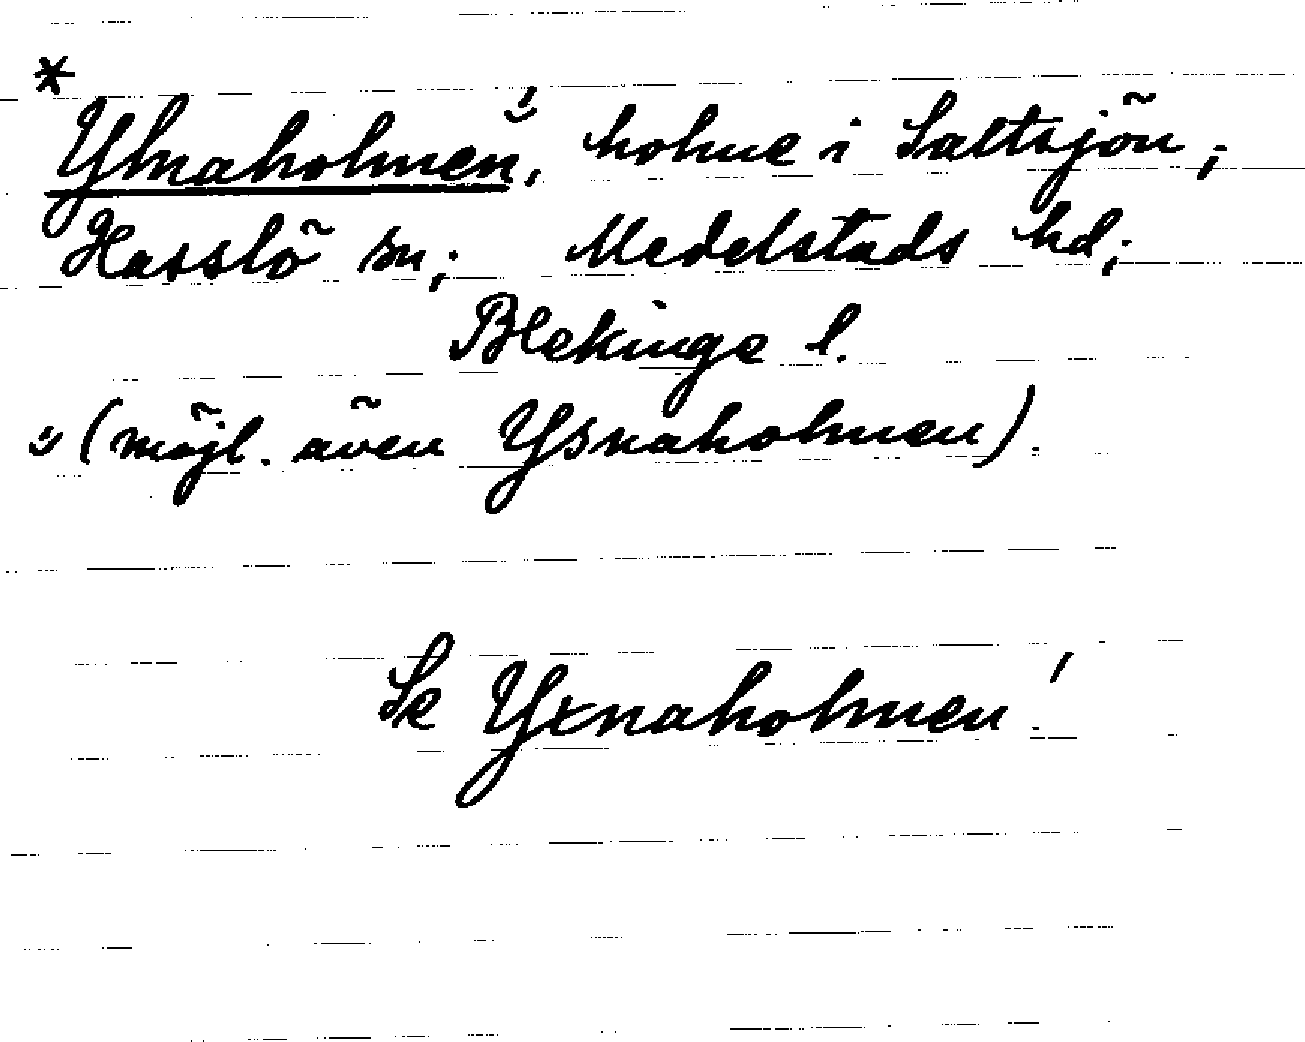 *
Ylnaholmen¹⁾, holme i Saltsjön;
Hasslö sn; Medelstads hd;
Blekinge l.
¹⁾ (möjl. även Ysnaholmen).
Se Yxnaholmen!